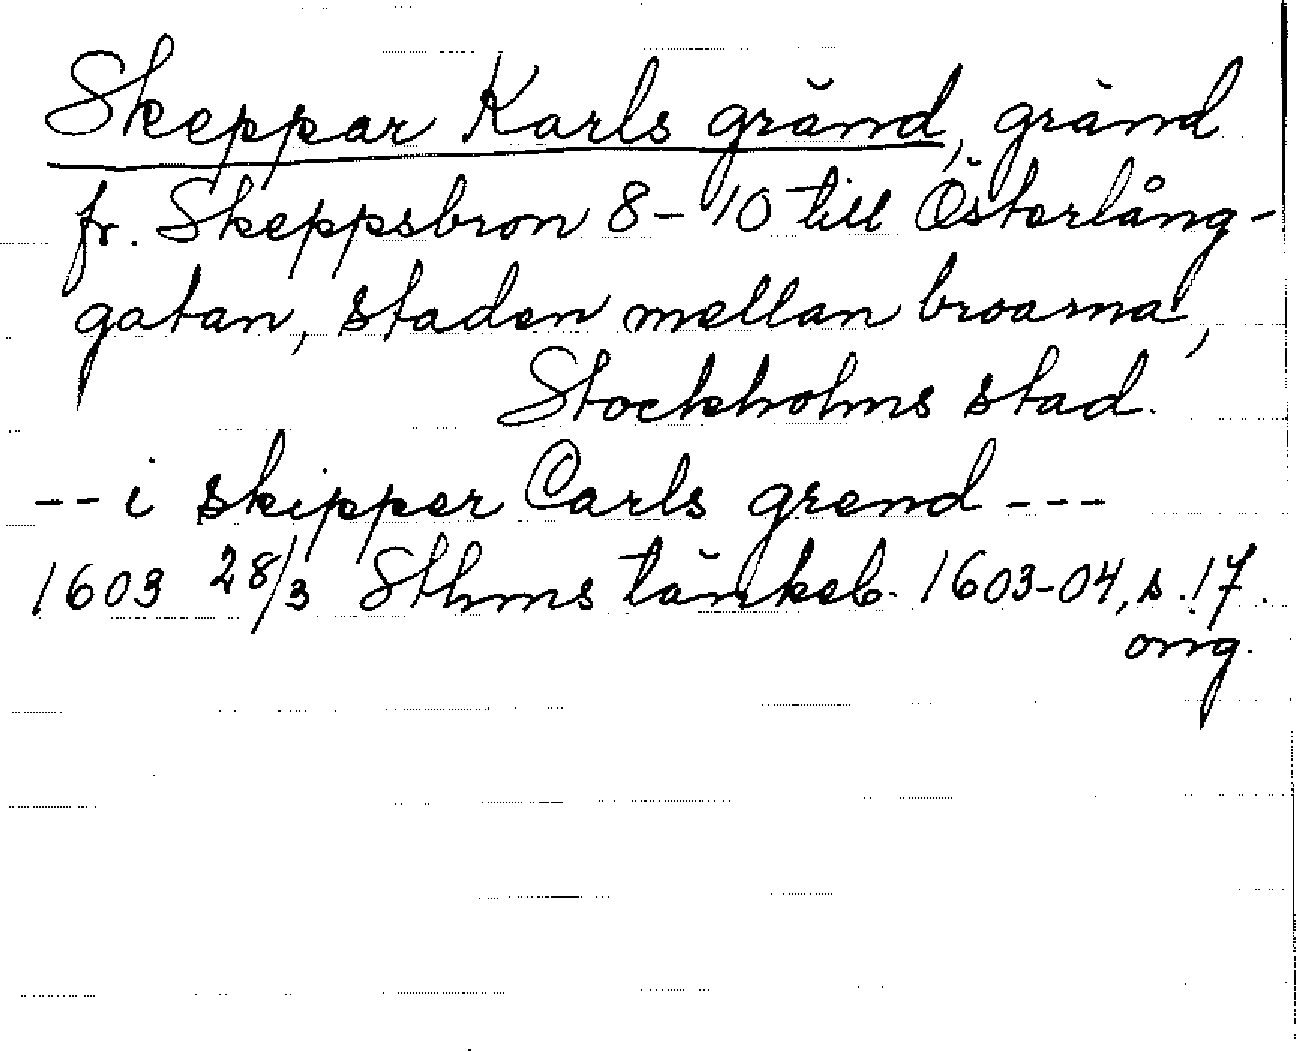 Skeppar Karls gränd, gränd
fr. Skeppsbron 8-10 till Österlång-
gatan, staden mellan broarna,
Stockholms stad.
-- i skipper Carls grend ---
1603 28/3 Sthms tänkeb. 1603-04, s. 17.
orig.